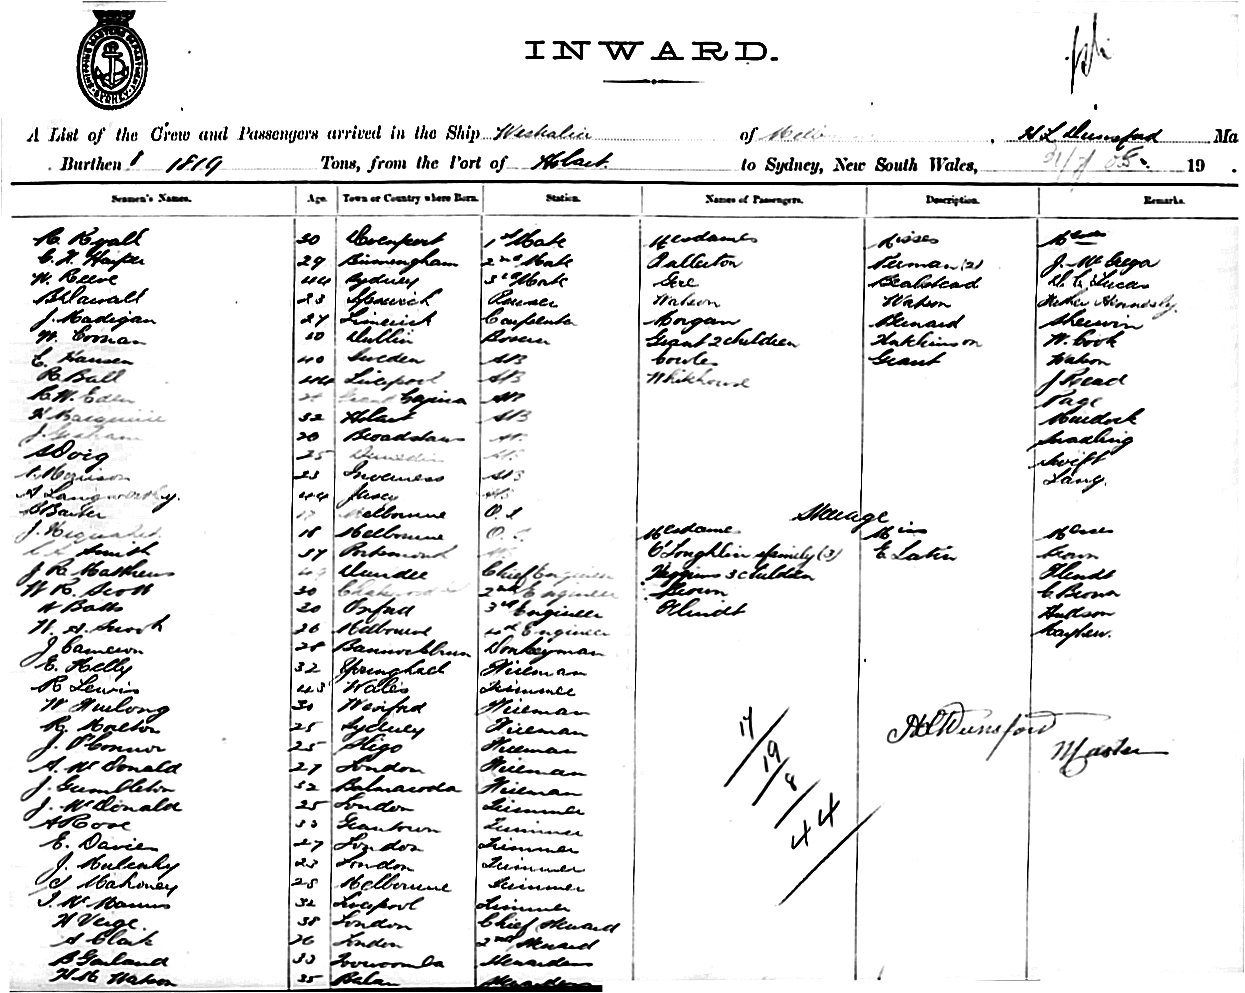 SHIPPING MASTERS DEPARTMENT SYDNEY
INWARD.
A List of the Crew and Passengers arrived in the Ship Westralia of H L Dunsford Ma
Burthen 1819 Tons, from the Port of Hobart to Sydney, New South Wales, 21/7 08. 19 .
Seamen's Names. Age. Town or Country where Born. Station. Names of Passengers. Description. Remarks.
R. Ryall 30 Devenport 1st Mate Mesdames Misses
29 Birmingham 2nd Mate Fullerton (2) J. McGregor
W. Reeve 44 Sydney 3rd Mate Lucas
23 Ipswich Purser Watson Watson
J. Madigan 27 Limerick Carpenter Morgan Bernard Sherwin
W. 50 Dublin Bosun Grant 2 children Hutchinson W. Cook
C. Hansen 40 Sweden AB Cowles Grant Watson
R. Ball 44 Liverpool AB Whitehouse J Read
R. W. Eden AB Page
32 Hobart AB Murdock
J. Graham 20 AB Snadling
Doig 25 Dunedin AB Swift
Morrison 23 Inverness AB Lang.
A Langworthy. 44 AB
Barker 17 Melbourne O.S Steerage
J. 18 Melbourne O.S. Mesdames Miss
Smith 37 Portsmouth O'Loughlin & family (3) E Latin Brown
J. R. Matthews 49 Dundee Chief Engineer Higgins 3 children
W R. Scott 30 2nd Engineer Brown C Brown
W Batts 30 Oxford 3rd Engineer Hudson
W. H. Smith 26 Melbourne 4th Engineer Mayhew.
J. Cameron 28 Bannockburn Donkeyman
E. Kelly 32 Younghall Fireman
R Lewis 43 Wales Trimmer
W Furlong 30 Wexford Fireman
R. Morton 25 Sydney Fireman
J. O'Connor 25 Sligo Fireman
A. McDonald 27 London Fireman
J. Gumbleton 32 Balmacoda Fireman
J. McDonald 25 London Trimmer
A Rose 33 Grantown Trimmer
E. Davies 27 London Trimmer
J. Mulcahy 23 London Trimmer
J Mahoney 25 Melbourne Trimmer
J. McManus 32 Liverpool Trimmer
W Verge. 38 London Chief Steward
A Clark 26 London 2nd Steward
B Garland 33 Toowoomba Stewardess
H. M. Watson 35 Stewardess
17
19
8
44
H L Dunsford
Master